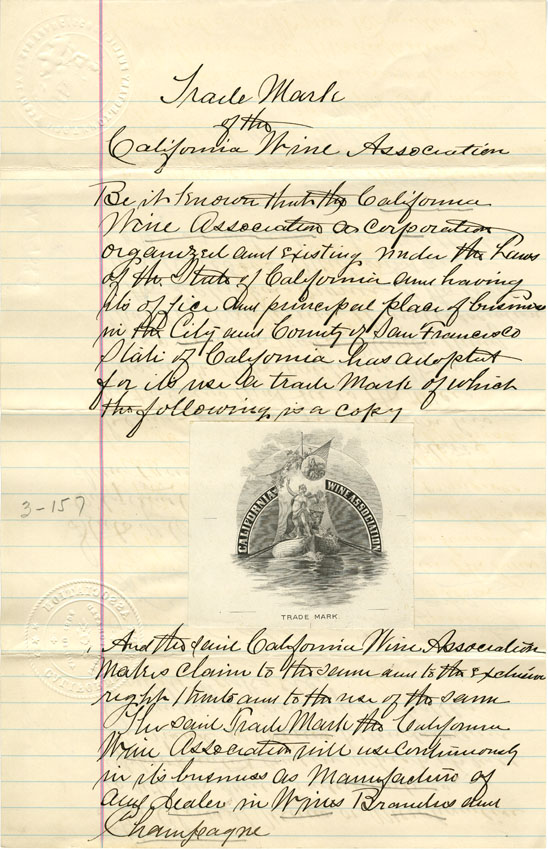 Trade Mark
of the
California Wine Association
Be it known that the California
Wine Association a corporation
organized and existing under the Laws
of the State of California and having
its office and principal place of business
in the City and County of San Francisco
State of California has adopted
for its use a trade Mark of which
the following is a copy
3-157
CALIFORNIA WINE ASSOCIATION
TRADE MARK
And the said California Wine Association
makes claim to the same and to the exclusive
right thereto and to the use of the same
The said Trade Mark the California
Wine Association will use continuously
in its business as Manufacture of
and Dealer in Wines Brandies and
Champagne